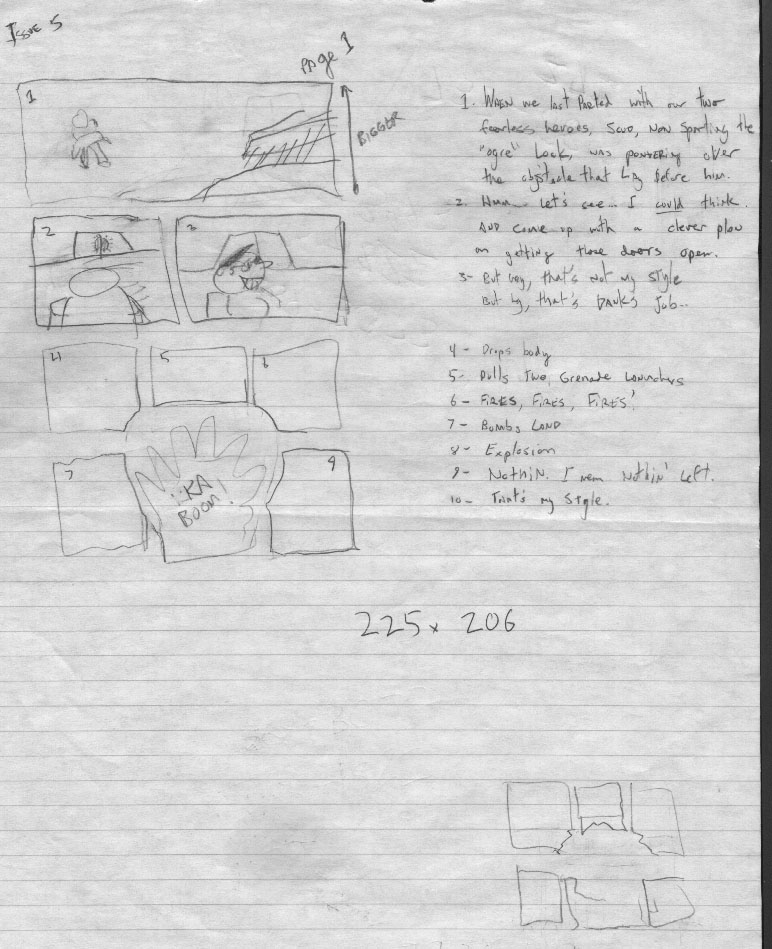 Issue 5
PAge 1
1
BIGGER
2
3
4
5
6
7
9
KA
BOOM!
1. WHEN we last Parted with our two
fearless heroes, now sporting the
"ogre" Look, was pondering over
the obstacle that lay before him.
2. Hmm... Let's see... I could think
AND come up with a clever plan
on getting those doors open.
3- But hey, that's not my style
But hey, that's job...
4 - Drops body
5- Pulls Two Grenade Launchers
6 - FIRES, FIRES, FIRES!
7 - Bombs LAND
8 - Explosion
9 - NothiN. I mean Nothin' Left.
10 - That's my Style.
225 x 206